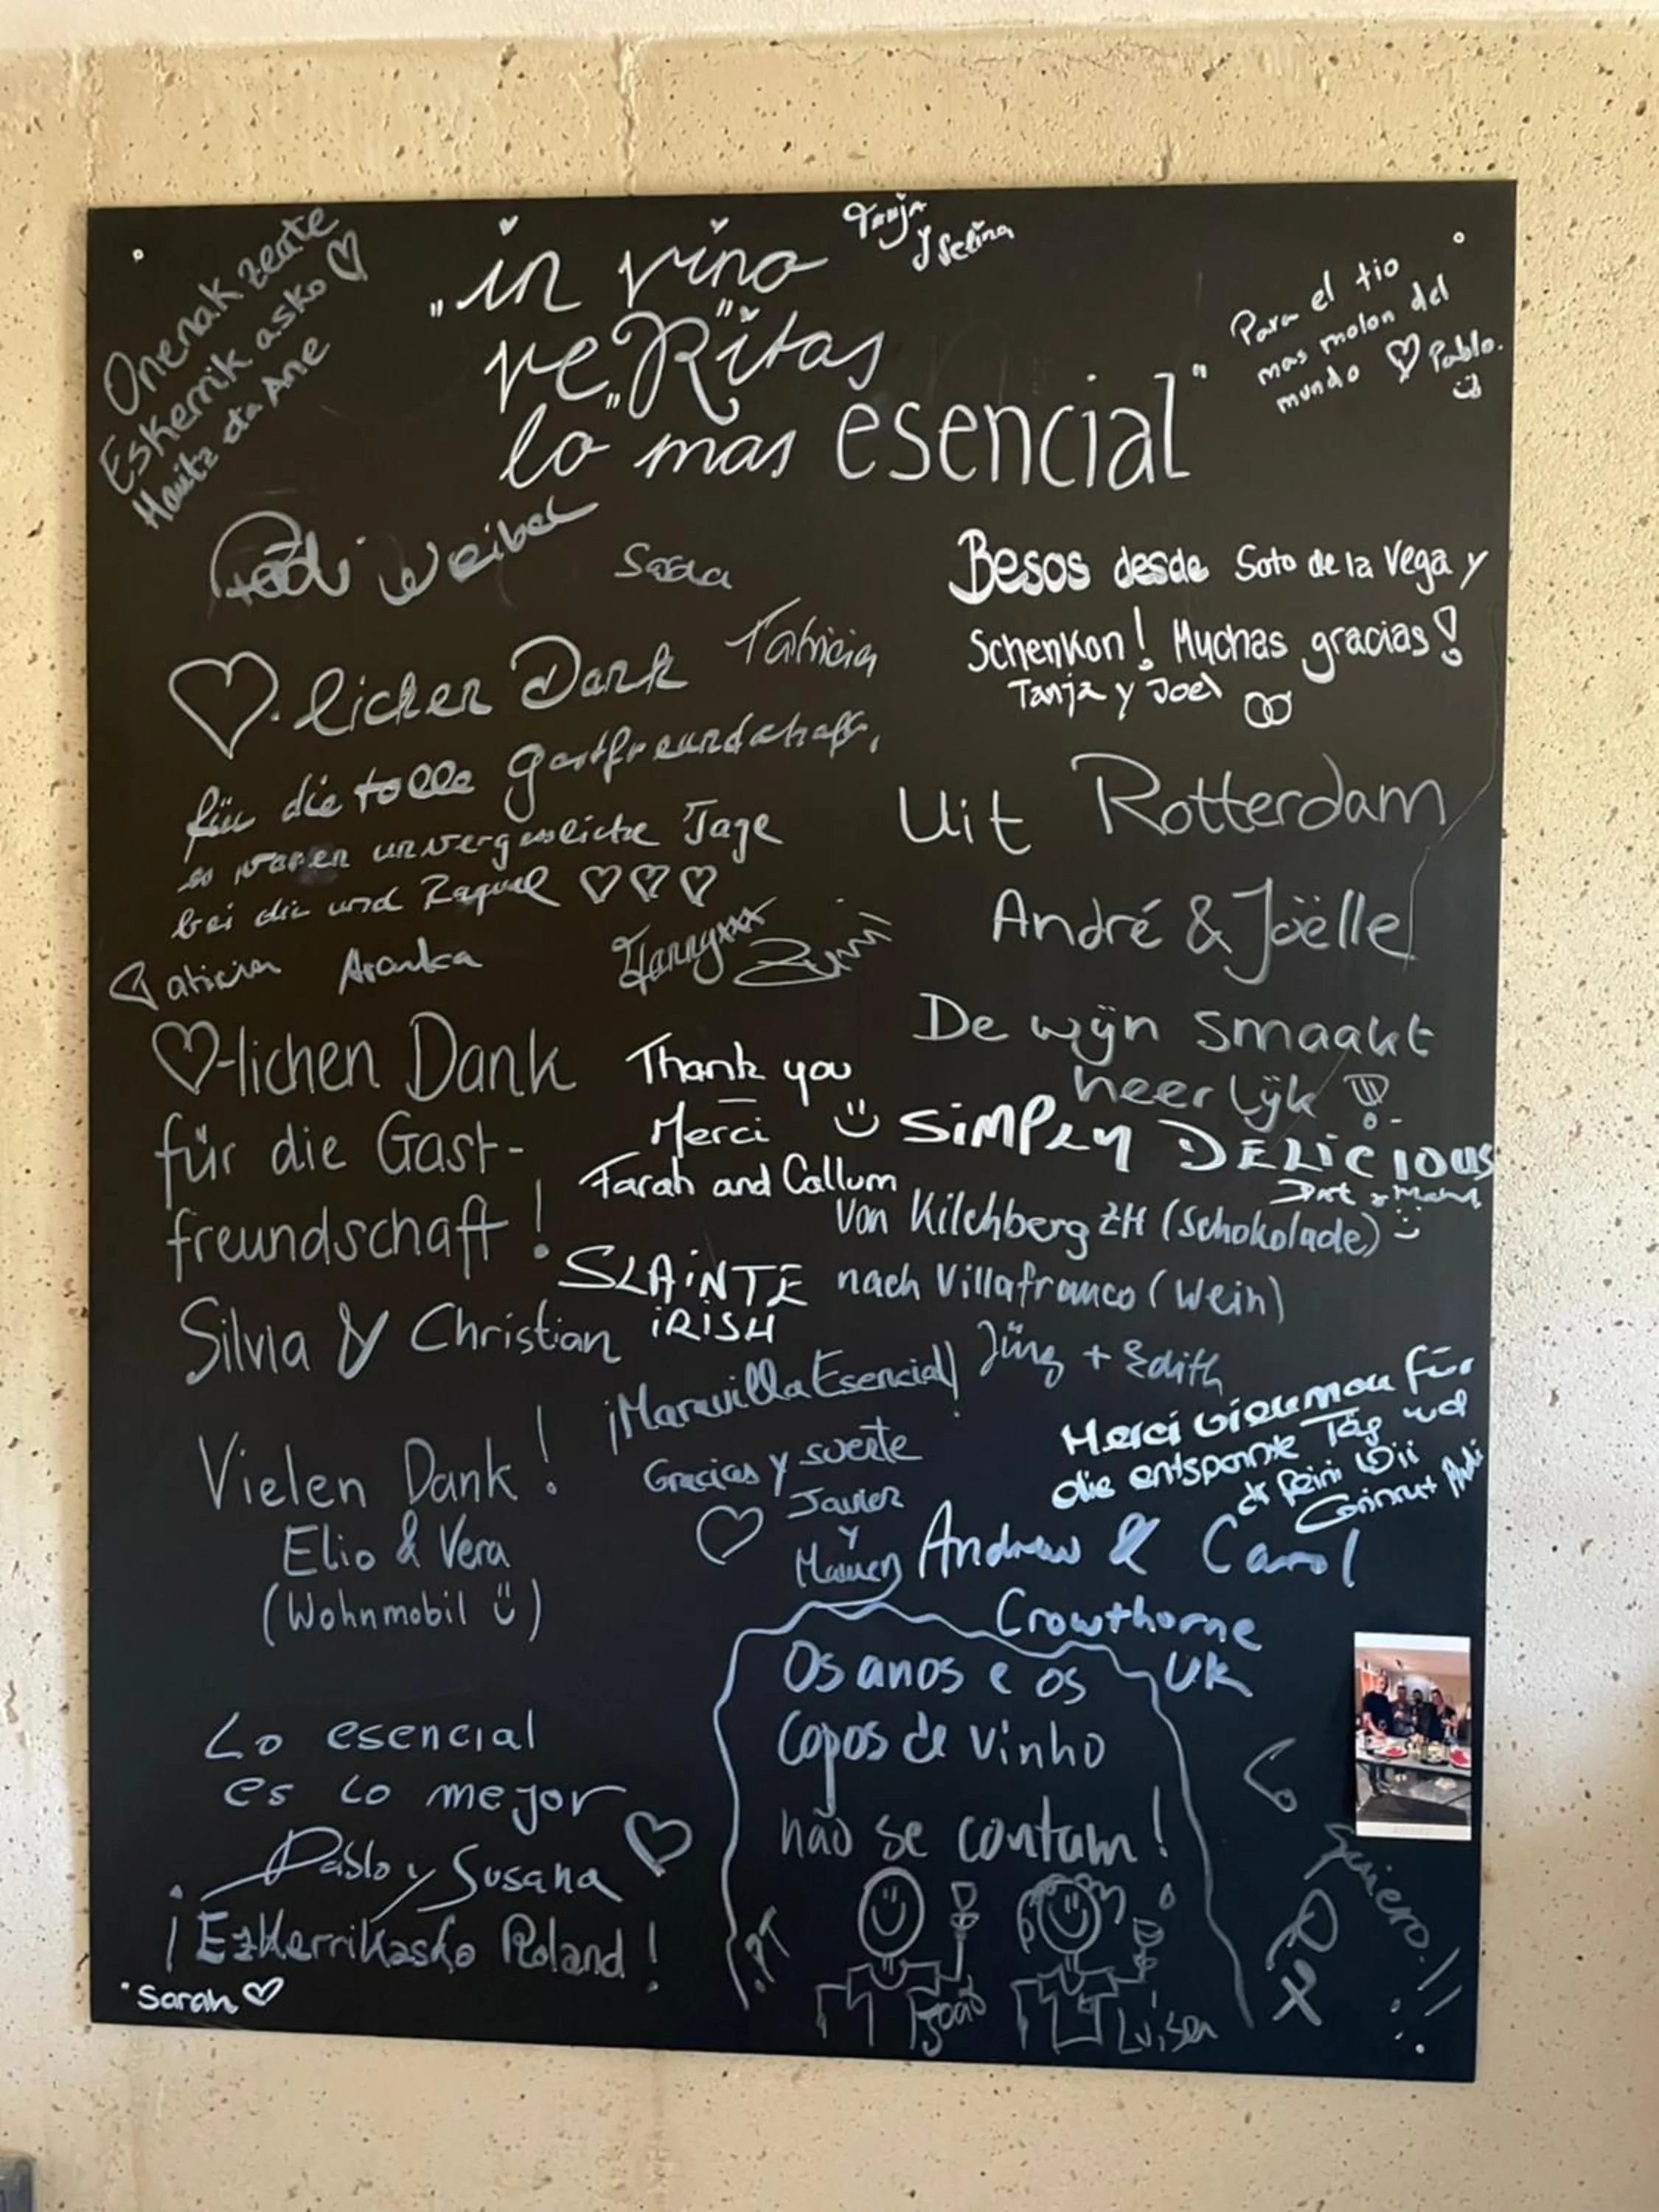 Onenak zeate
Eskerrik asko ♡
Haitz da Ane
"in vino
ve "Ritas"
lo mas esencial"
Tanja
y Selina
Para el tio
mas molon del
mundo ♡ Pablo.
Weibel
♡-lichen Dank
für die tolle Gastfreundschaft,
es waren unvergessliche Tage
bei dir und Raquel ♡♡♡
Patricia Aranka
Besos desde Soto de la Vega y
Schenkon! Muchas gracias!
Tanja y Joel
Uit Rotterdam
André & Joëlle
De wijn smaakt
heerlijk!
♡-lichen Dank
für die Gast-
freundschaft!
Silvia & Christian
Thank you
Merci
Farah and Callum
SiMPLY DELiCIOUS
Von Kilchberg ZH (Schokolade)
nach Villafranco (Wein)
Jürg + Edith
SLAiNTE
iRiSH
¡Maravilla Esencial!
Gracias y suerte
Javier
y
Merci vieumau für
die entspannte Täg und
dr feini Wii
Vielen Dank!
Elio & Vera
(Wohnmobil)
Andrew & Carol
Crowthorne
UK
Os anos e os
copos de vinho
não se contam!
PT
João
Luisa
Lo esencial
es lo mejor
Pablo y Susana ♡
¡Ezkerrikasko Roland!
Sarah ♡
Lo
quiero!!